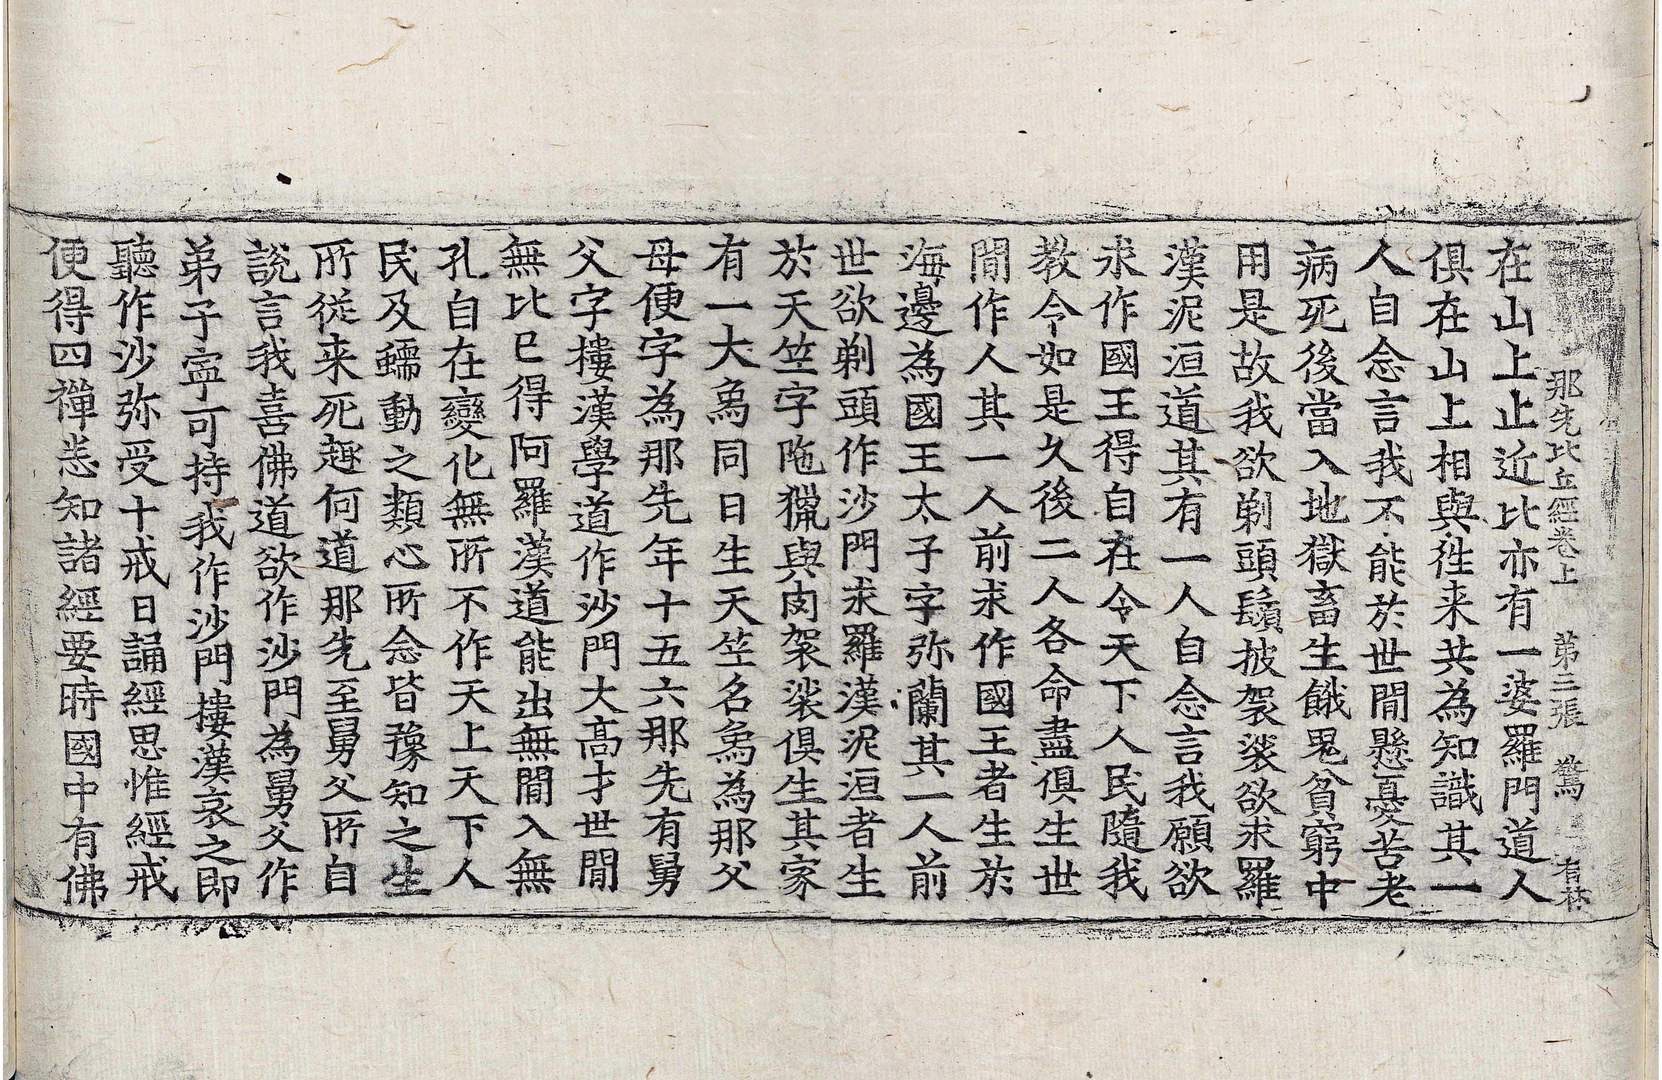 那先比丘經卷上 第三張 驚 有林
在山上止近比亦有一婆羅門道人
俱在山上相與徃来共為知識其一
人自念言我不能於世間懸憂苦老
病死後當入地獄畜生餓鬼貧窮中
用是故我欲剃頭鬚披袈裟欲求羅
漢泥洹道其有一人自念言我願欲
求作國王得自在令天下人民隨我
教令如是久後二人各命盡俱生世
間作人其一人前求作國王者生於
海邊為國王太子字弥蘭其一人前
世欲剃頭作沙門求羅漢泥洹者生
於天竺字陁獵與肉袈裟俱生其家
有一大為同日生天竺名為為那父
母便字為那先年十五六那先有舅
父字樓漢學道作沙門大高才世間
無比已得阿羅漢道能出無間入無
孔自在變化無所不作天上天下人
民及蠕動之類心所念皆豫知之生
所從来死趣何道那先至舅父所自
說言我喜佛道欲作沙門為舅父作
弟子寧可持我作沙門樓漢哀之即
聽作沙弥受十戒日誦經思惟經戒
便得四禪悉知諸經要時國中有佛